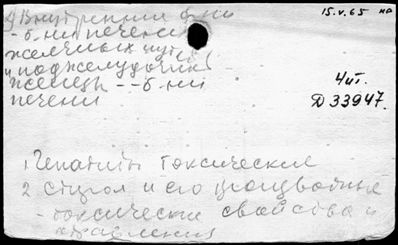 Внутренние б-ни
- б-ни печени
желчных путей
и поджелудочн.
железы -- б-ни
печени
15.V.65
Чит.
Д 33947.
1 Гепатиты токсические
2 Стирол и его производные
- токсические свойства и
отравления